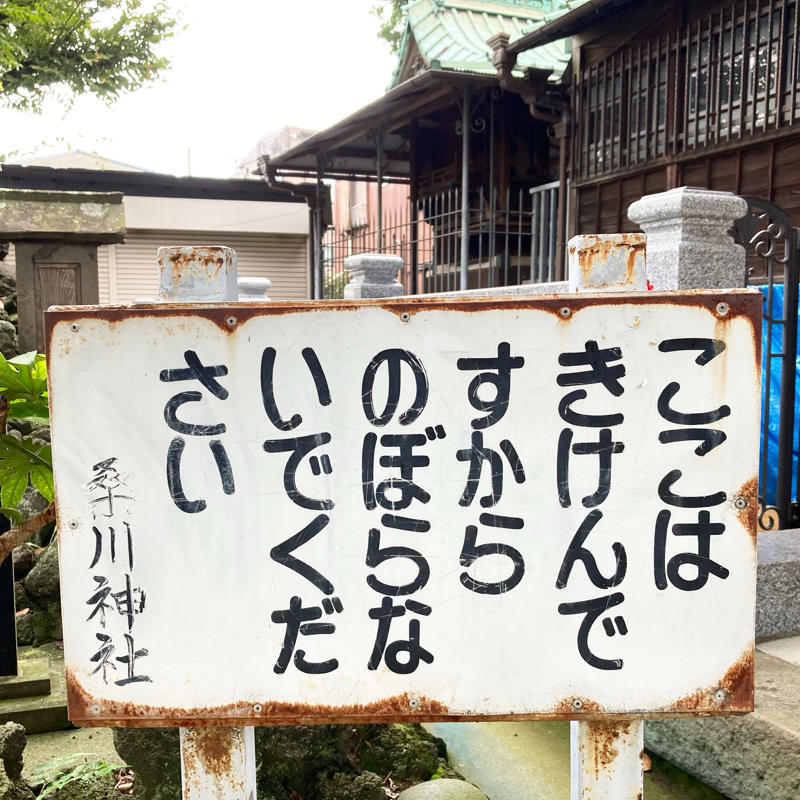 ここは
きけんで
すから
のぼらな
いでくだ
さい
桑川神社